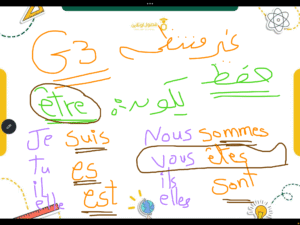 G3 غير منتظم
être يكون: حفظ
Je suis Nous sommes
tu es vous êtes
il est ils sont
elle elles